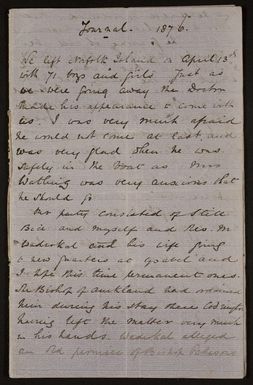 Journal. 1876.
We left Norfolk Island on April 13th
with 71 boys and girls Just as
we were going away the Doctor
made his appearance to come with
us. I was very much afraid
he would not come at last, and
was very glad when he was
safely in the boat as Mrs
was very anxious that
he should go
Our party consisted of Still
Bice and myself and Rev. M
Wadrokal and his wife going
to new quarters at Ysabel and
I hope this time permanent ones.
The Bishop of Auckland had ordained
him during his stay there Codrington
having left the matter very much
in his hands. Wadrokal alleged
an old promise of Bishop Patteson